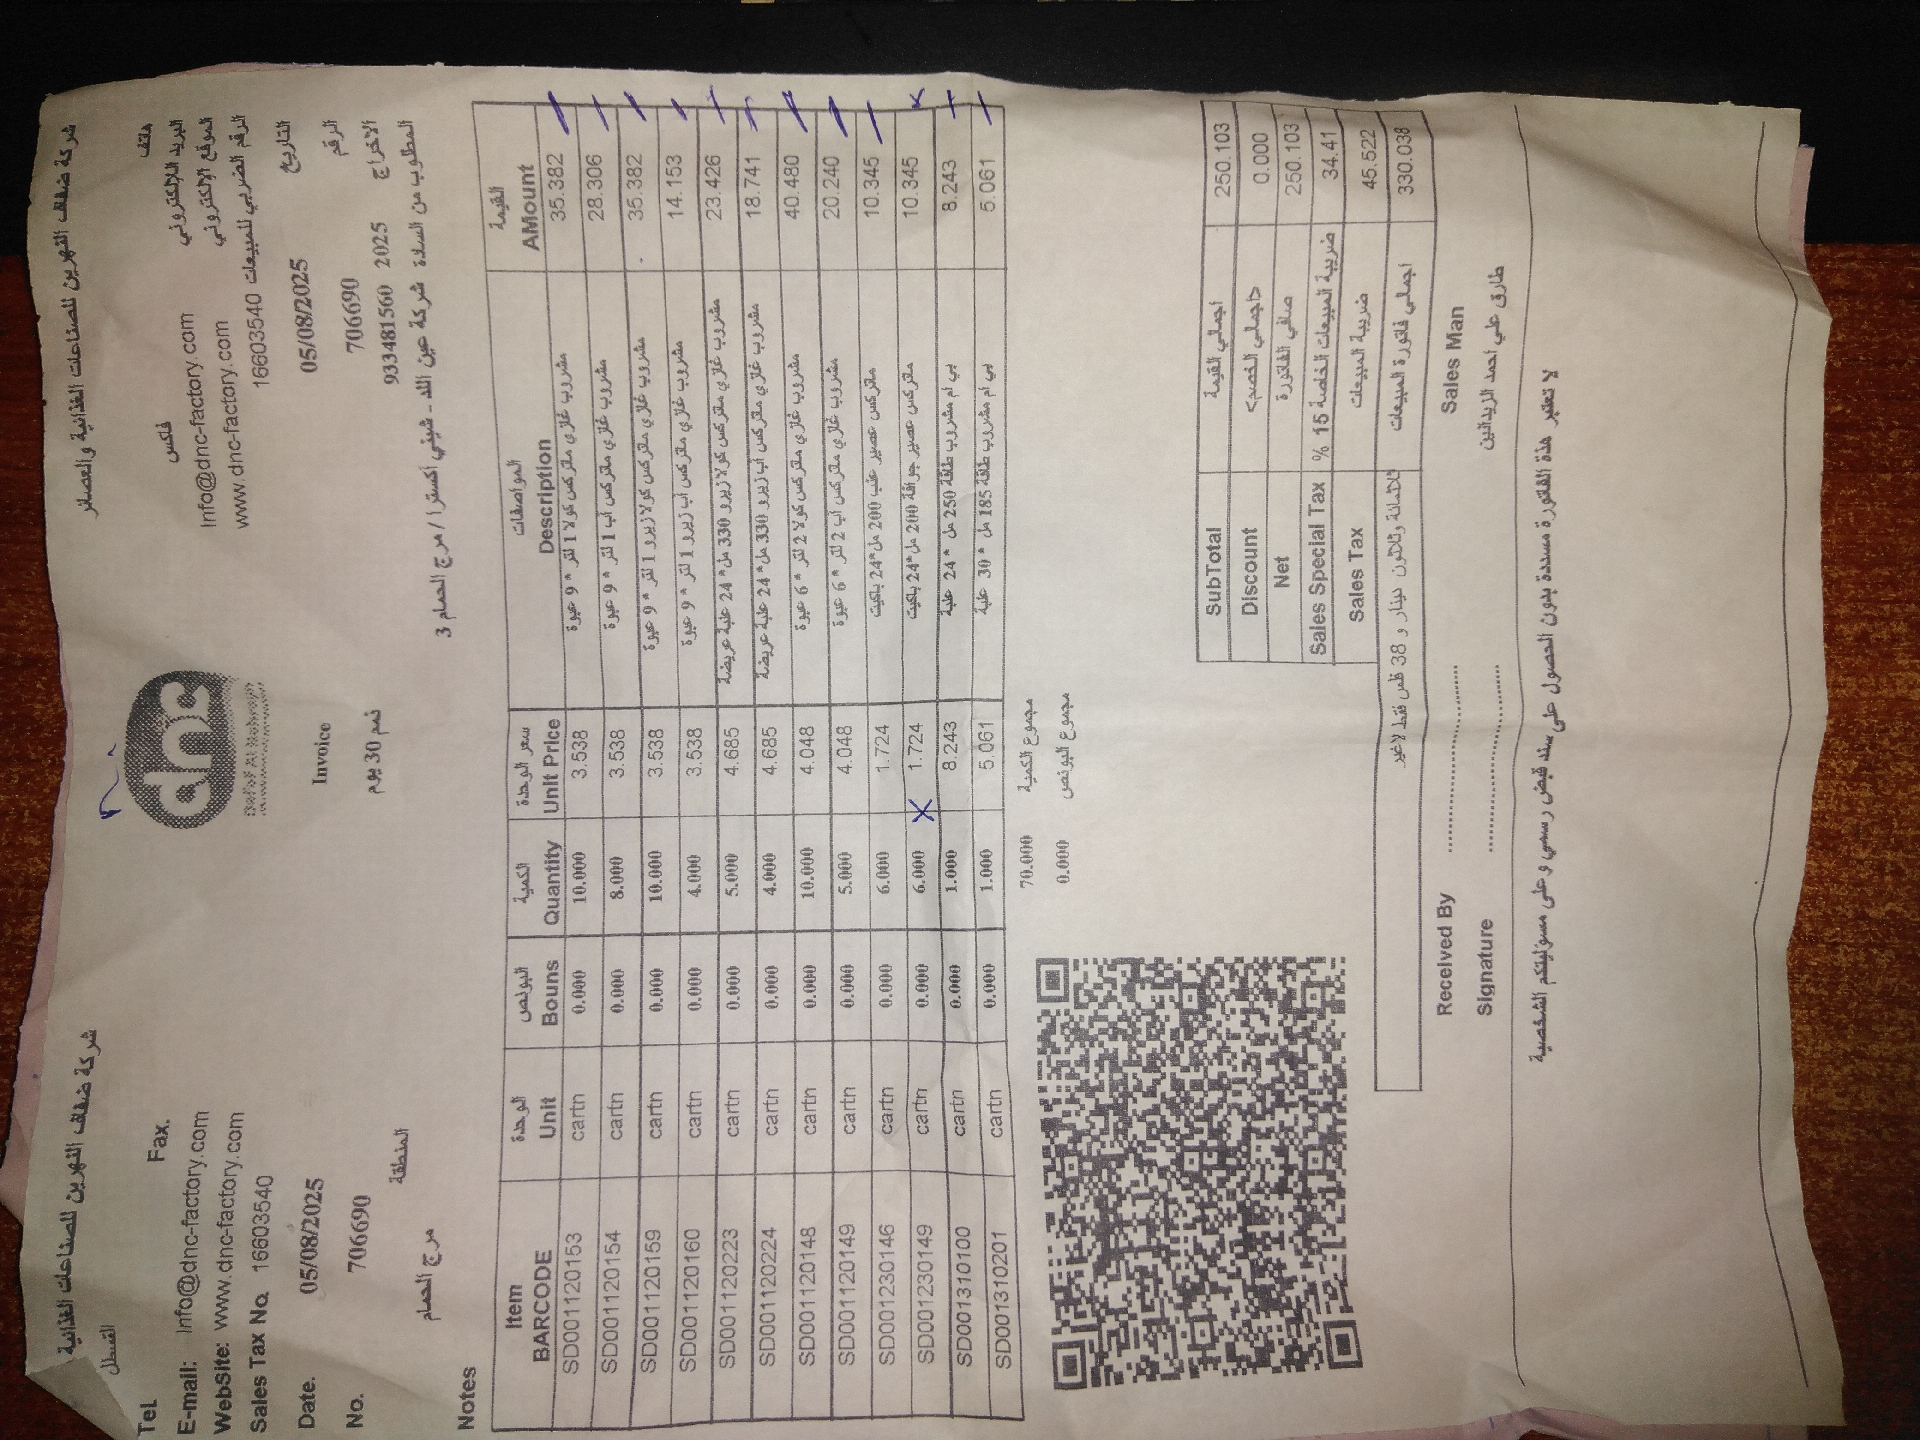 شركة ضفاف النهرين للصناعات الغذائية
شركة ضفاف النهرين للصناعات الغذائية والعصائر
القسطل
Tel.
Fax.
فاكس
هاتف
E-mail: Info@dnc-factory.com
Info@dnc-factory.com البريد الالكتروني
WebSite: www.dnc-factory.com
www.dnc-factory.com الموقع الإلكتروني
Sales Tax No. 16603540
16603540 الرقم الضريبي للمبيعات
dnc
Invoice
Date. 05/08/2025
05/08/2025 التاريخ
No. 706690
706690 الرقم
ذمم 30 يوم
933481560 2025 الاخراج
المنطقة
مرج الحمام
المطلوب من السادة شركة عين الله - شيني اكسترا / مرج الحمام 3
Notes
Item الوحدة البونص الكمية سعر الوحدة المواصفات القيمة
BARCODE Unit Bouns Quantity Unit Price Description AMount
SD001120153 cartn 0.000 10.000 3.538 مشروب غازي متركس كولا 1 لتر * 9 عبوة 35.382
SD001120154 cartn 0.000 8.000 3.538 مشروب غازي متركس اب 1 لتر * 9 عبوة 28.306
SD001120159 cartn 0.000 10.000 3.538 مشروب غازي متركس كولا زيرو 1 لتر * 9 عبوة 35.382
SD001120160 cartn 0.000 4.000 3.538 مشروب غازي متركس اب زيرو 1 لتر * 9 عبوة 14.153
SD001120223 cartn 0.000 5.000 4.685 مشروب غازي متركس كولا زيرو 330 مل * 24 علبة عريضة 23.426
SD001120224 cartn 0.000 4.000 4.685 مشروب غازي متركس اب زيرو 330 مل * 24 علبة عريضة 18.741
SD001120148 cartn 0.000 10.000 4.048 مشروب غازي متركس كولا 2 لتر * 6 عبوة 40.480
SD001120149 cartn 0.000 5.000 4.048 مشروب غازي متركس اب 2 لتر * 6 عبوة 20.240
SD001230146 cartn 0.000 6.000 1.724 متركس عصير عنب 200 مل*24 باكيت 10.345
SD001230149 cartn 0.000 6.000 1.724 متركس عصير جوافة 200 مل*24 باكيت 10.345
SD001310100 cartn 0.000 1.000 8.243 بي ام مشروب طاقة 250 مل * 24 علبة 8.243
SD001310201 cartn 0.000 1.000 5.061 بي ام مشروب طاقة 185 مل * 30 علبة 5.061
70.000 مجموع الكمية
0.000 مجموع البونص
SubTotal اجمالي القيمة 250.103
Discount اجمالي الخصم> 0.000
Net صافي الفاتورة 250.103
Sales Special Tax ضريبة المبيعات الخاصة 15 % 34.41
Sales Tax ضريبة المبيعات 45.522
ثلاثمائة وثلاثون دينار و 38 فلس فقط لاغير اجمالي فاتورة المبيعات 330.038
Received By ........................ Sales Man
Signature ........................ طارق علي احمد الزيدانين
لا تعتبر هذة الفاتورة مسددة بدون الحصول على سند قبض رسمي وعلى مسؤليتكم الشخصية